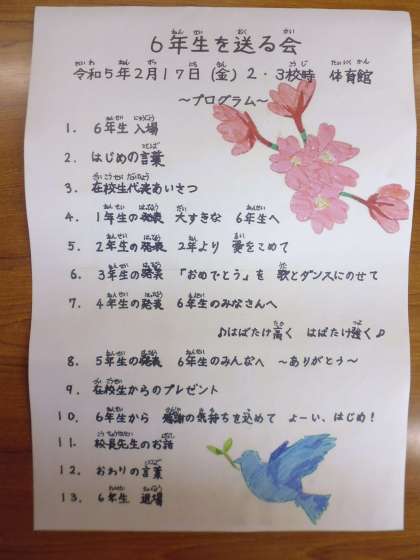 6年生を送る会
令和5年2月17日(金) 2・3校時 体育館
~プログラム~
1. 6年生 入場
2. はじめの言葉
3. 在校生代表あいさつ
4. 1年生の発表 大すきな 6年生へ
5. 2年生の発表 2年より 愛をこめて
6. 3年生の発表 「おめでとう」を 歌とダンスにのせて
7. 4年生の発表 6年生のみなさんへ
♪はばたけ高く はばたけ強く♪
8. 5年生の発表 6年生のみんなへ ~ありがとう~
9. 在校生からのプレゼント
10. 6年生から 感謝の気持ちを込めて よーい、はじめ!
11. 校長先生のお話
12. おわりの言葉
13. 6年生 退場